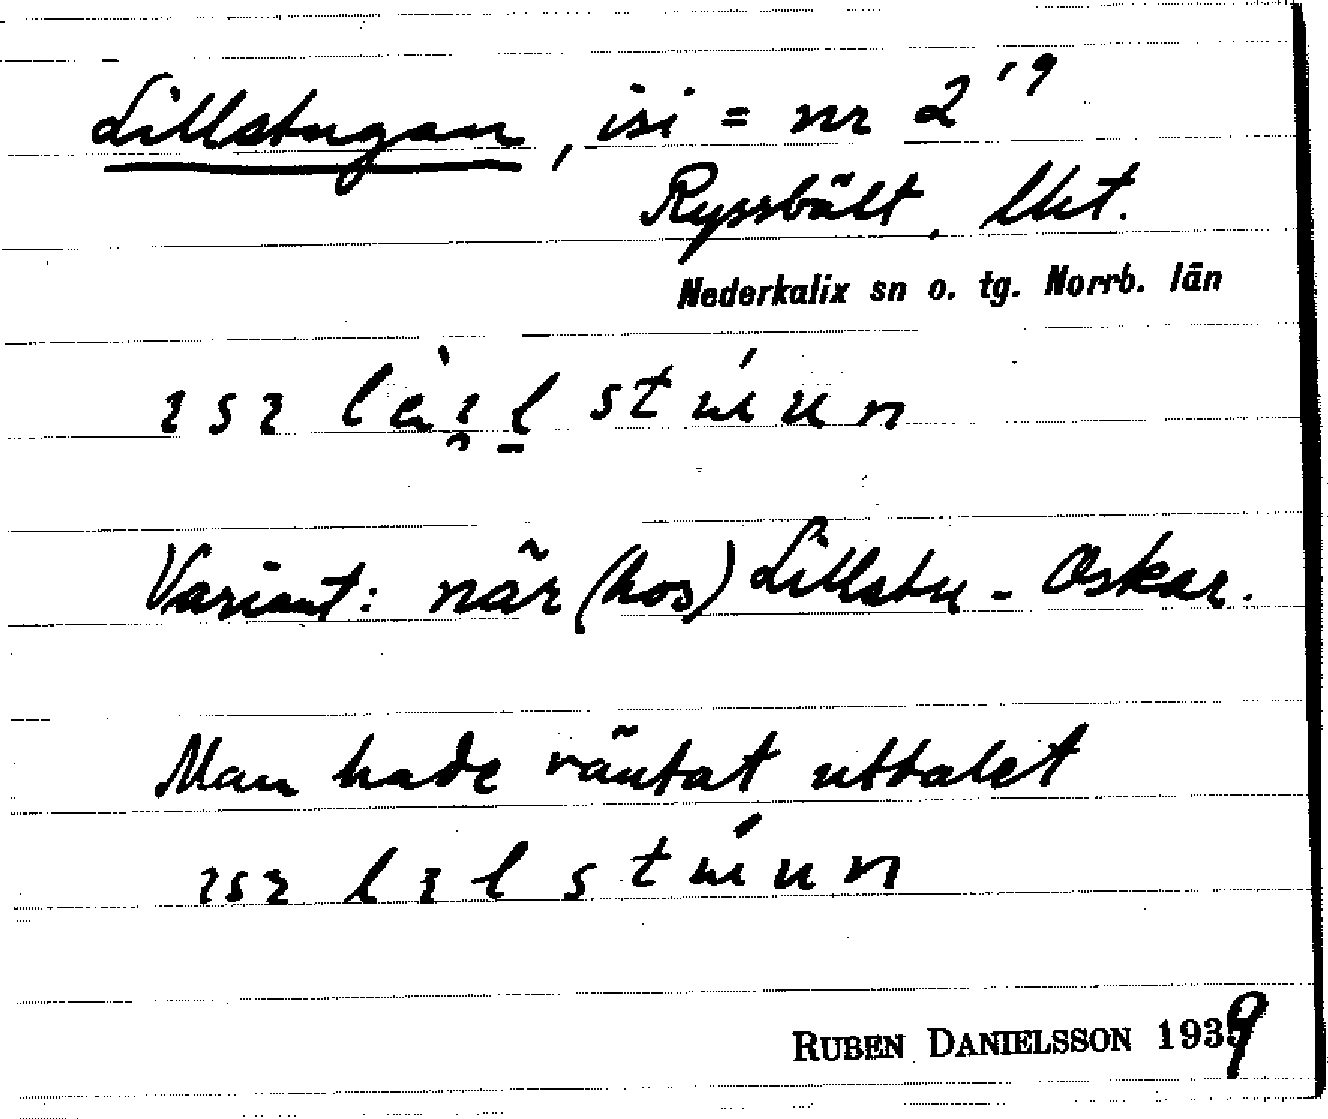 Lillstugan, isi = nr 2¹⁹
Ryssbält, lht.
Nederkalix sn o. tg. Norrb. län
Variant: när (hos) Lillstu-Oskar.
Man hade väntat uttalet
RUBEN DANIELSSON 1939